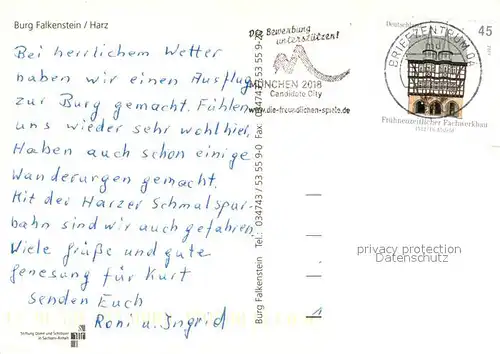 Burg Falkenstein / Harz
Bei herrlichem Wetter
haben wir einen Ausflug
zur Burg gemacht. Fühlen
uns wieder sehr wohl hier.
Haben auch schon einige
Wanderungen gemacht.
Mit der Harzer Schmalspur-
bahn sind wir auch gefahren.
Viele Grüße und gute
Genesung für Kurt
senden Euch
Roni u. Ingrid
Stiftung Dome und Schlösser
in Sachsen-Anhalt
Burg Falkenstein Tel.: 034743 / 53 55 9-0 Fax: 034743/53 55 9-
Die Bewerbung
unterstützen!
MÜNCHEN 2018
Candidate City
www.die-freundlichen-spiele.de
BRIEFZENTRUM 0
Deutschl
45
Frühneuzeitlicher Fachwerkbau
privacy protection
Datenschutz